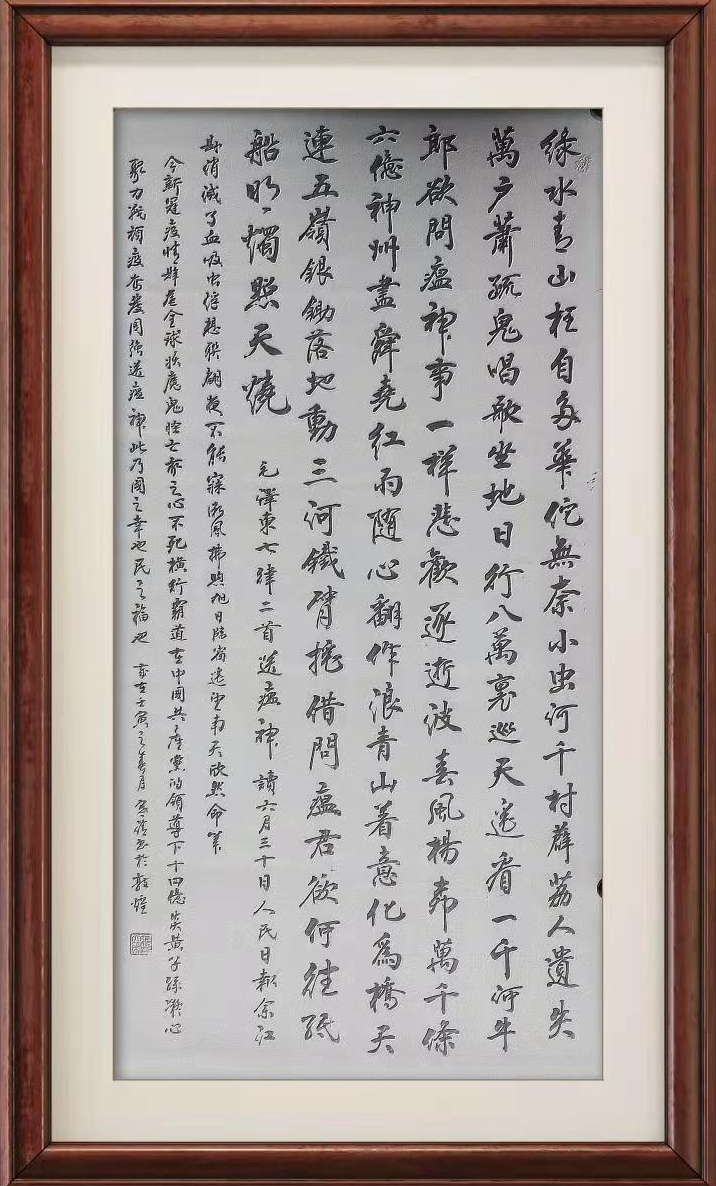 緑水青山枉自多華佗無奈小虫何千村薜荔人遺失
萬户蕭疏鬼唱歌坐地日行八萬裏巡天遥看一千河牛
郎欲問瘟神事一样悲歡逐逝波春風楊柳萬千條
六億神州盡舜堯紅雨随心翻作浪青山着意化爲橋天
連五嶺銀鋤落地動三河鐵臂摇借問瘟君欲何往紙
船明燭照天燒 毛澤東七律二首送瘟神 讀六月三十日人民日報余江
縣消滅了血吸虫浮想联翩夜不能寐微風拂煦旭日臨窗遥望南天欣然命筆
今新冠疫情肆虐全球妖魔鬼怪亡我之心不死横行霸道在中國共産黨的領導下十四億炎黄子孫凝心
聚力戰病疫奮發图强送瘟神此乃國之幸也民之福也 壬寅之春月 書於敦煌